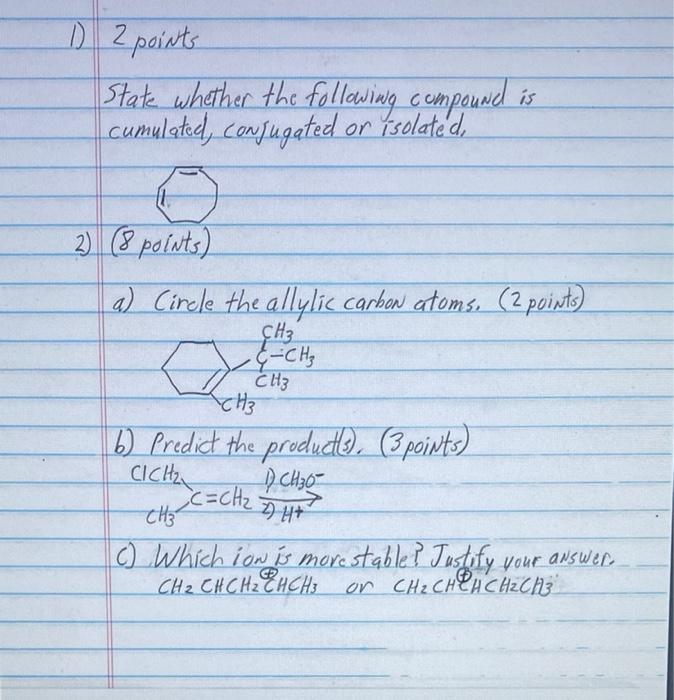 1) 2 points
State whether the following compound is
cumulated, conjugated or isolated.
2) (8 points)
a) Circle the allylic carbon atoms. (2 points)
CH3
C-CH3
CH3
CH3
b) Predict the product(s). (3 points)
ClCH2 1) CH3O-
C=CH2 2) H+
CH3
c) Which ion is more stable? Justify your answer.
CH2 CHCH2 ⊕CHCH3 or CH2 CH⊕CHCH2CH3